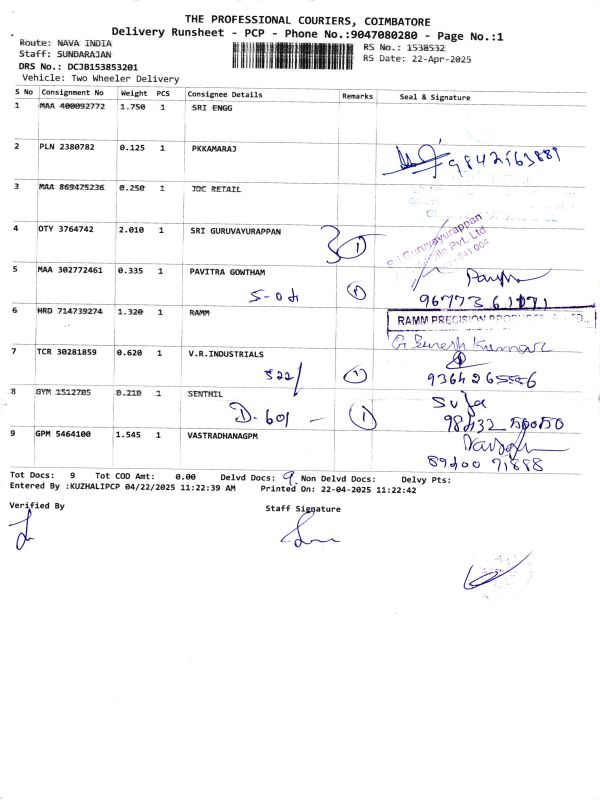 THE PROFESSIONAL COURIERS, COIMBATORE
Delivery Runsheet - PCP - Phone No.:9047080280 - Page No.:1
Route: NAVA INDIA
RS No.: 1538532
Staff: SUNDARAJAN
RS Date: 22-Apr-2025
DRS No.: DCJB153853201
Vehicle: Two Wheeler Delivery
S No Consignment No Weight PCS Consignee Details Remarks Seal & Signature
1 MAA 400092772 1.750 1 SRI ENGG
2 PLN 2380782 0.125 1 PKKAMARAJ
9842163881
3 MAA 869475236 0.250 1 JDC RETAIL
4 OTY 3764742 2.010 1 SRI GURUVAYURAPPAN
3 1
Sri Guruvayurappan
Pvt. Ltd
641 004
5 MAA 302772461 0.335 1 PAVITRA GOWTHAM
1
96773 61171
6 HRD 714739274 1.320 1 RAMM
RAMM PRECISION
G. Suresh Kumar
7 TCR 30281859 0.620 1 V.R.INDUSTRIALS
522/ 1
8 GYM 1512705 0.210 1 SENTHIL
Suja
D-601 - 1
98432 50050
9 GPM 5464100 1.545 1 VASTRADHANAGPM
Tot Docs: 9 Tot COD Amt: 0.00 Delvd Docs: 9 Non Delvd Docs: Delvy Pts:
Entered By :KUZHALIPCP 04/22/2025 11:22:39 AM Printed On: 22-04-2025 11:22:42
Verified By
Staff Signature